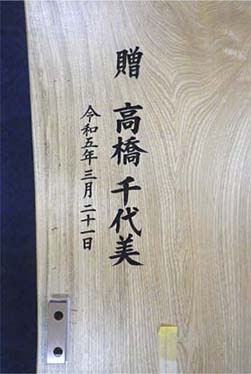 贈 高橋千代美
令和五年三月二十一日